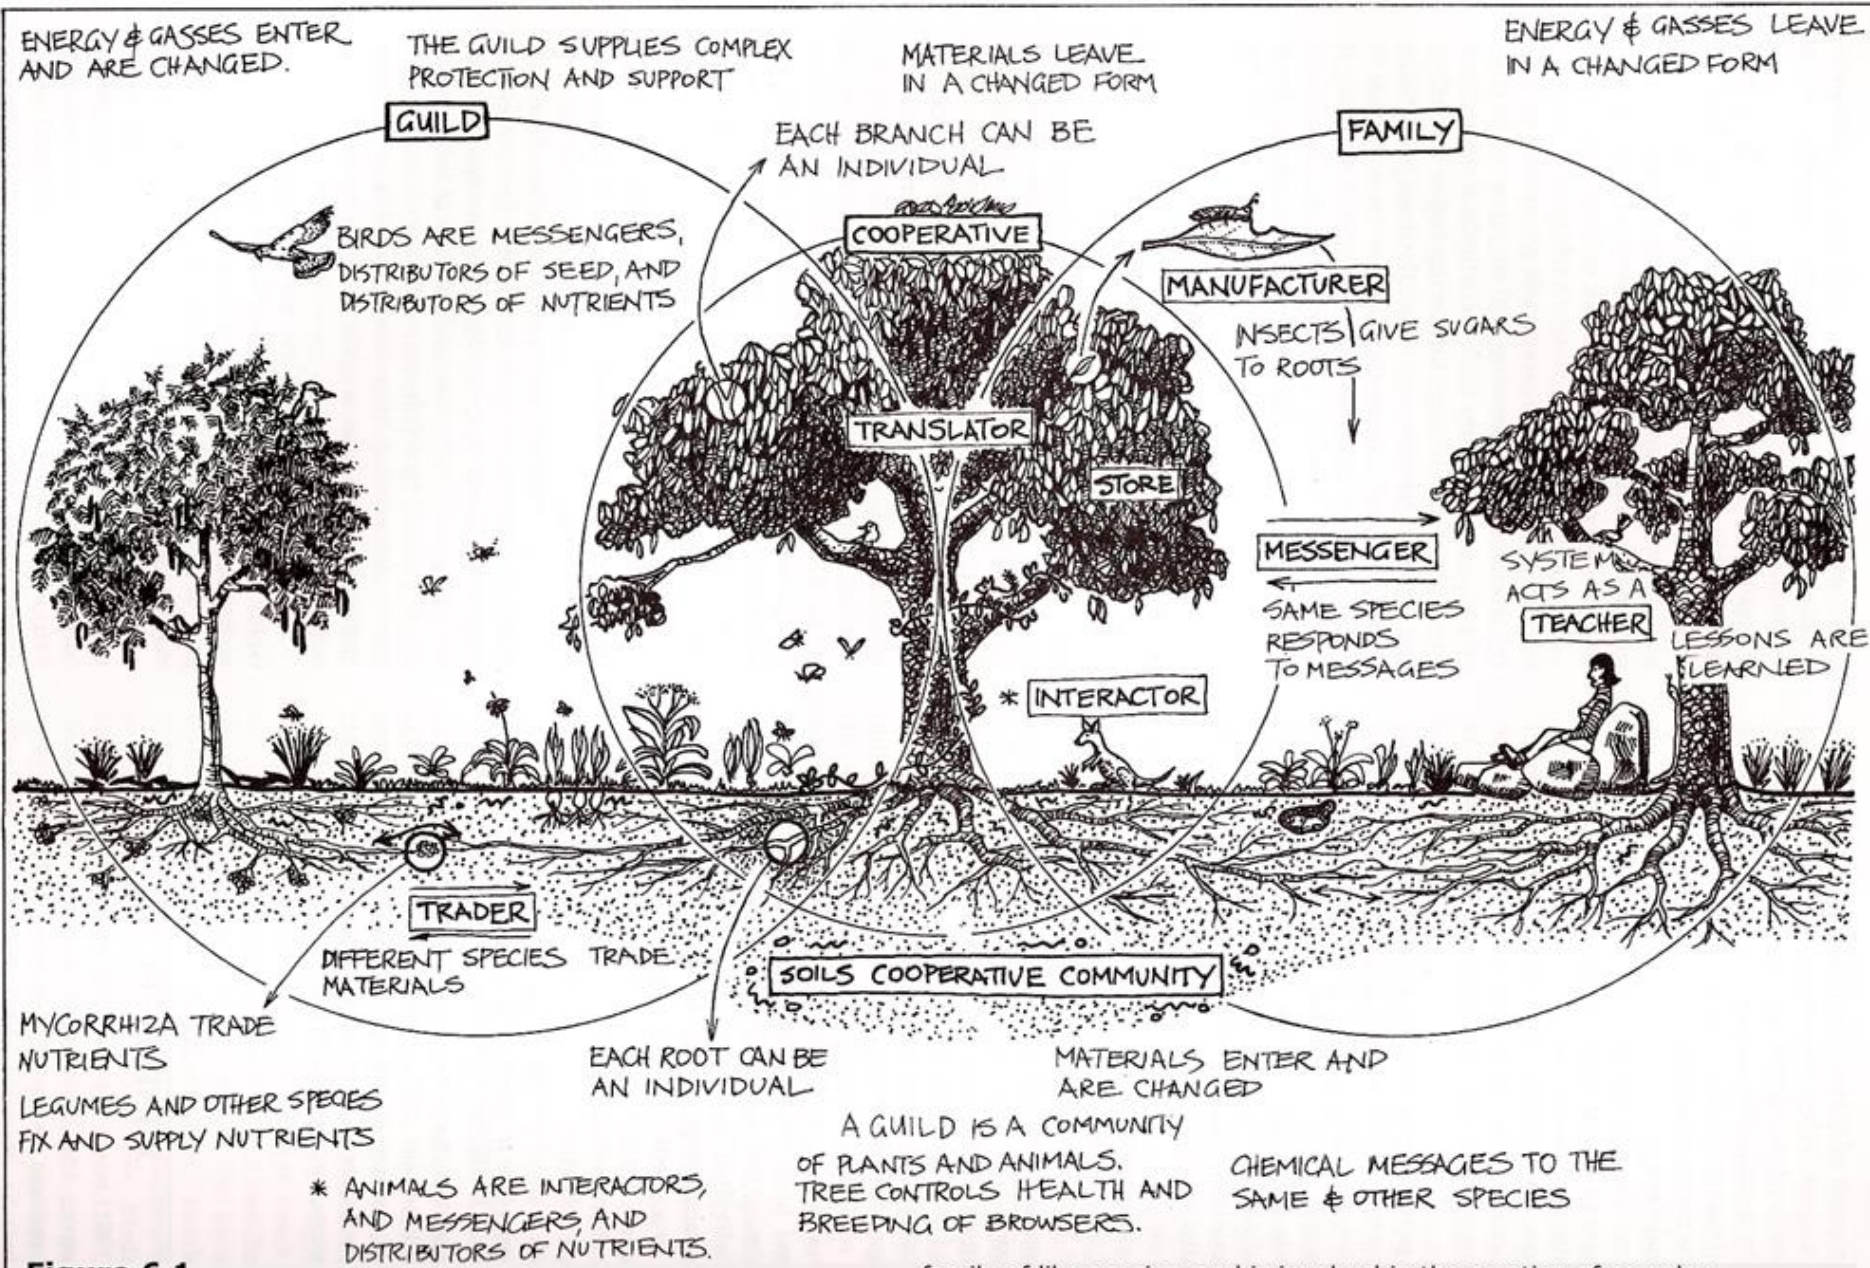 ENERGY & GASSES ENTER
AND ARE CHANGED.
THE GUILD SUPPLIES COMPLEX
PROTECTION AND SUPPORT
MATERIALS LEAVE
IN A CHANGED FORM
ENERGY & GASSES LEAVE
IN A CHANGED FORM
GUILD
EACH BRANCH CAN BE
AN INDIVIDUAL
FAMILY
BIRDS ARE MESSENGERS,
DISTRIBUTORS OF SEED, AND
DISTRIBUTORS OF NUTRIENTS
COOPERATIVE
MANUFACTURER
INSECTS GIVE SUGARS
TO ROOTS
TRANSLATOR
STORE
MESSENGER
SAME SPECIES
RESPONDS
TO MESSAGES
SYSTEM
ACTS AS A
TEACHER
LESSONS ARE
LEARNED
* INTERACTOR
TRADER
DIFFERENT SPECIES TRADE
MATERIALS
SOILS COOPERATIVE COMMUNITY
MYCORRHIZA TRADE
NUTRIENTS
LEGUMES AND OTHER SPECIES
FIX AND SUPPLY NUTRIENTS
EACH ROOT CAN BE
AN INDIVIDUAL
MATERIALS ENTER AND
ARE CHANGED
A GUILD IS A COMMUNITY
OF PLANTS AND ANIMALS.
TREE CONTROLS HEALTH AND
BREEDING OF BROWSERS.
CHEMICAL MESSAGES TO THE
SAME & OTHER SPECIES
* ANIMALS ARE INTERACTORS,
AND MESSENGERS, AND
DISTRIBUTORS OF NUTRIENTS.